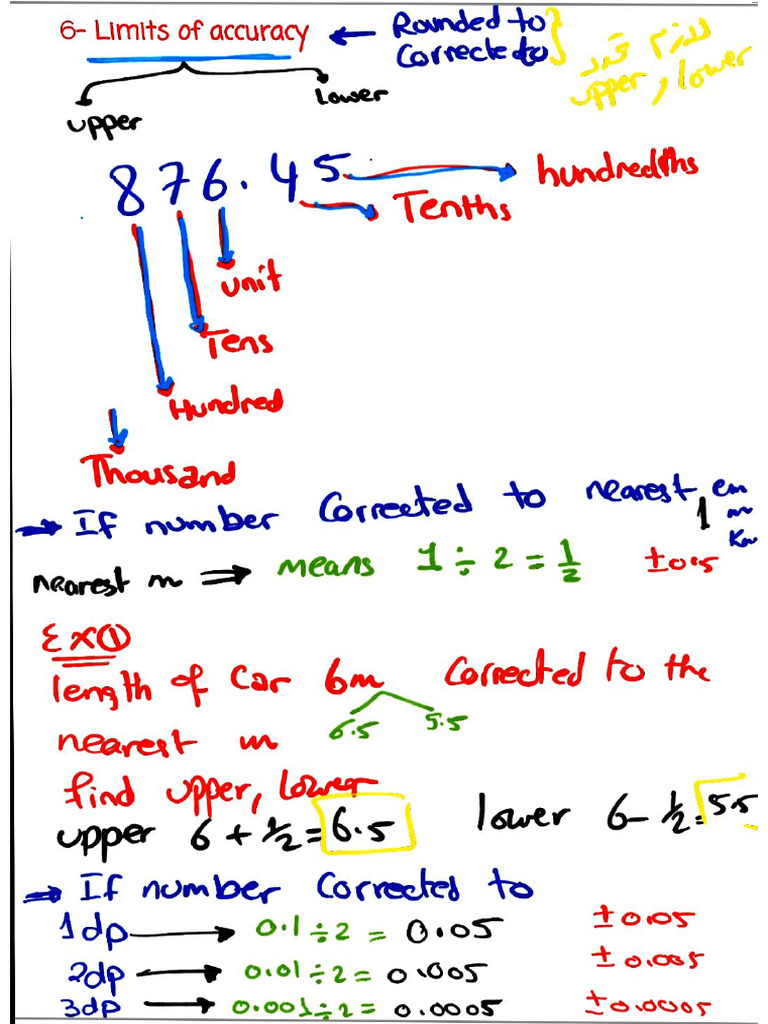 6- Limits of accuracy ← Rounded to
Corrected to
لازم
upper, lower
upper
Lower
876.45
hundredths
Tenths
unit
Tens
Hundred
Thousand
If number Corrected to nearest 1 cm
m
Km
nearest m ⇒ means 1 ÷ 2 = 1/2 ±0.5
Ex①
length of Car 6m Corrected to the
6.5 5.5
nearest m
find upper, lower
upper 6 + 1/2 = 6.5 lower 6 - 1/2 = 5.5
If number Corrected to
1dp → 0.1 ÷ 2 = 0.05 ±0.05
2dp → 0.01 ÷ 2 = 0.005 ±0.005
3dp → 0.001 ÷ 2 = 0.0005 ±0.0005